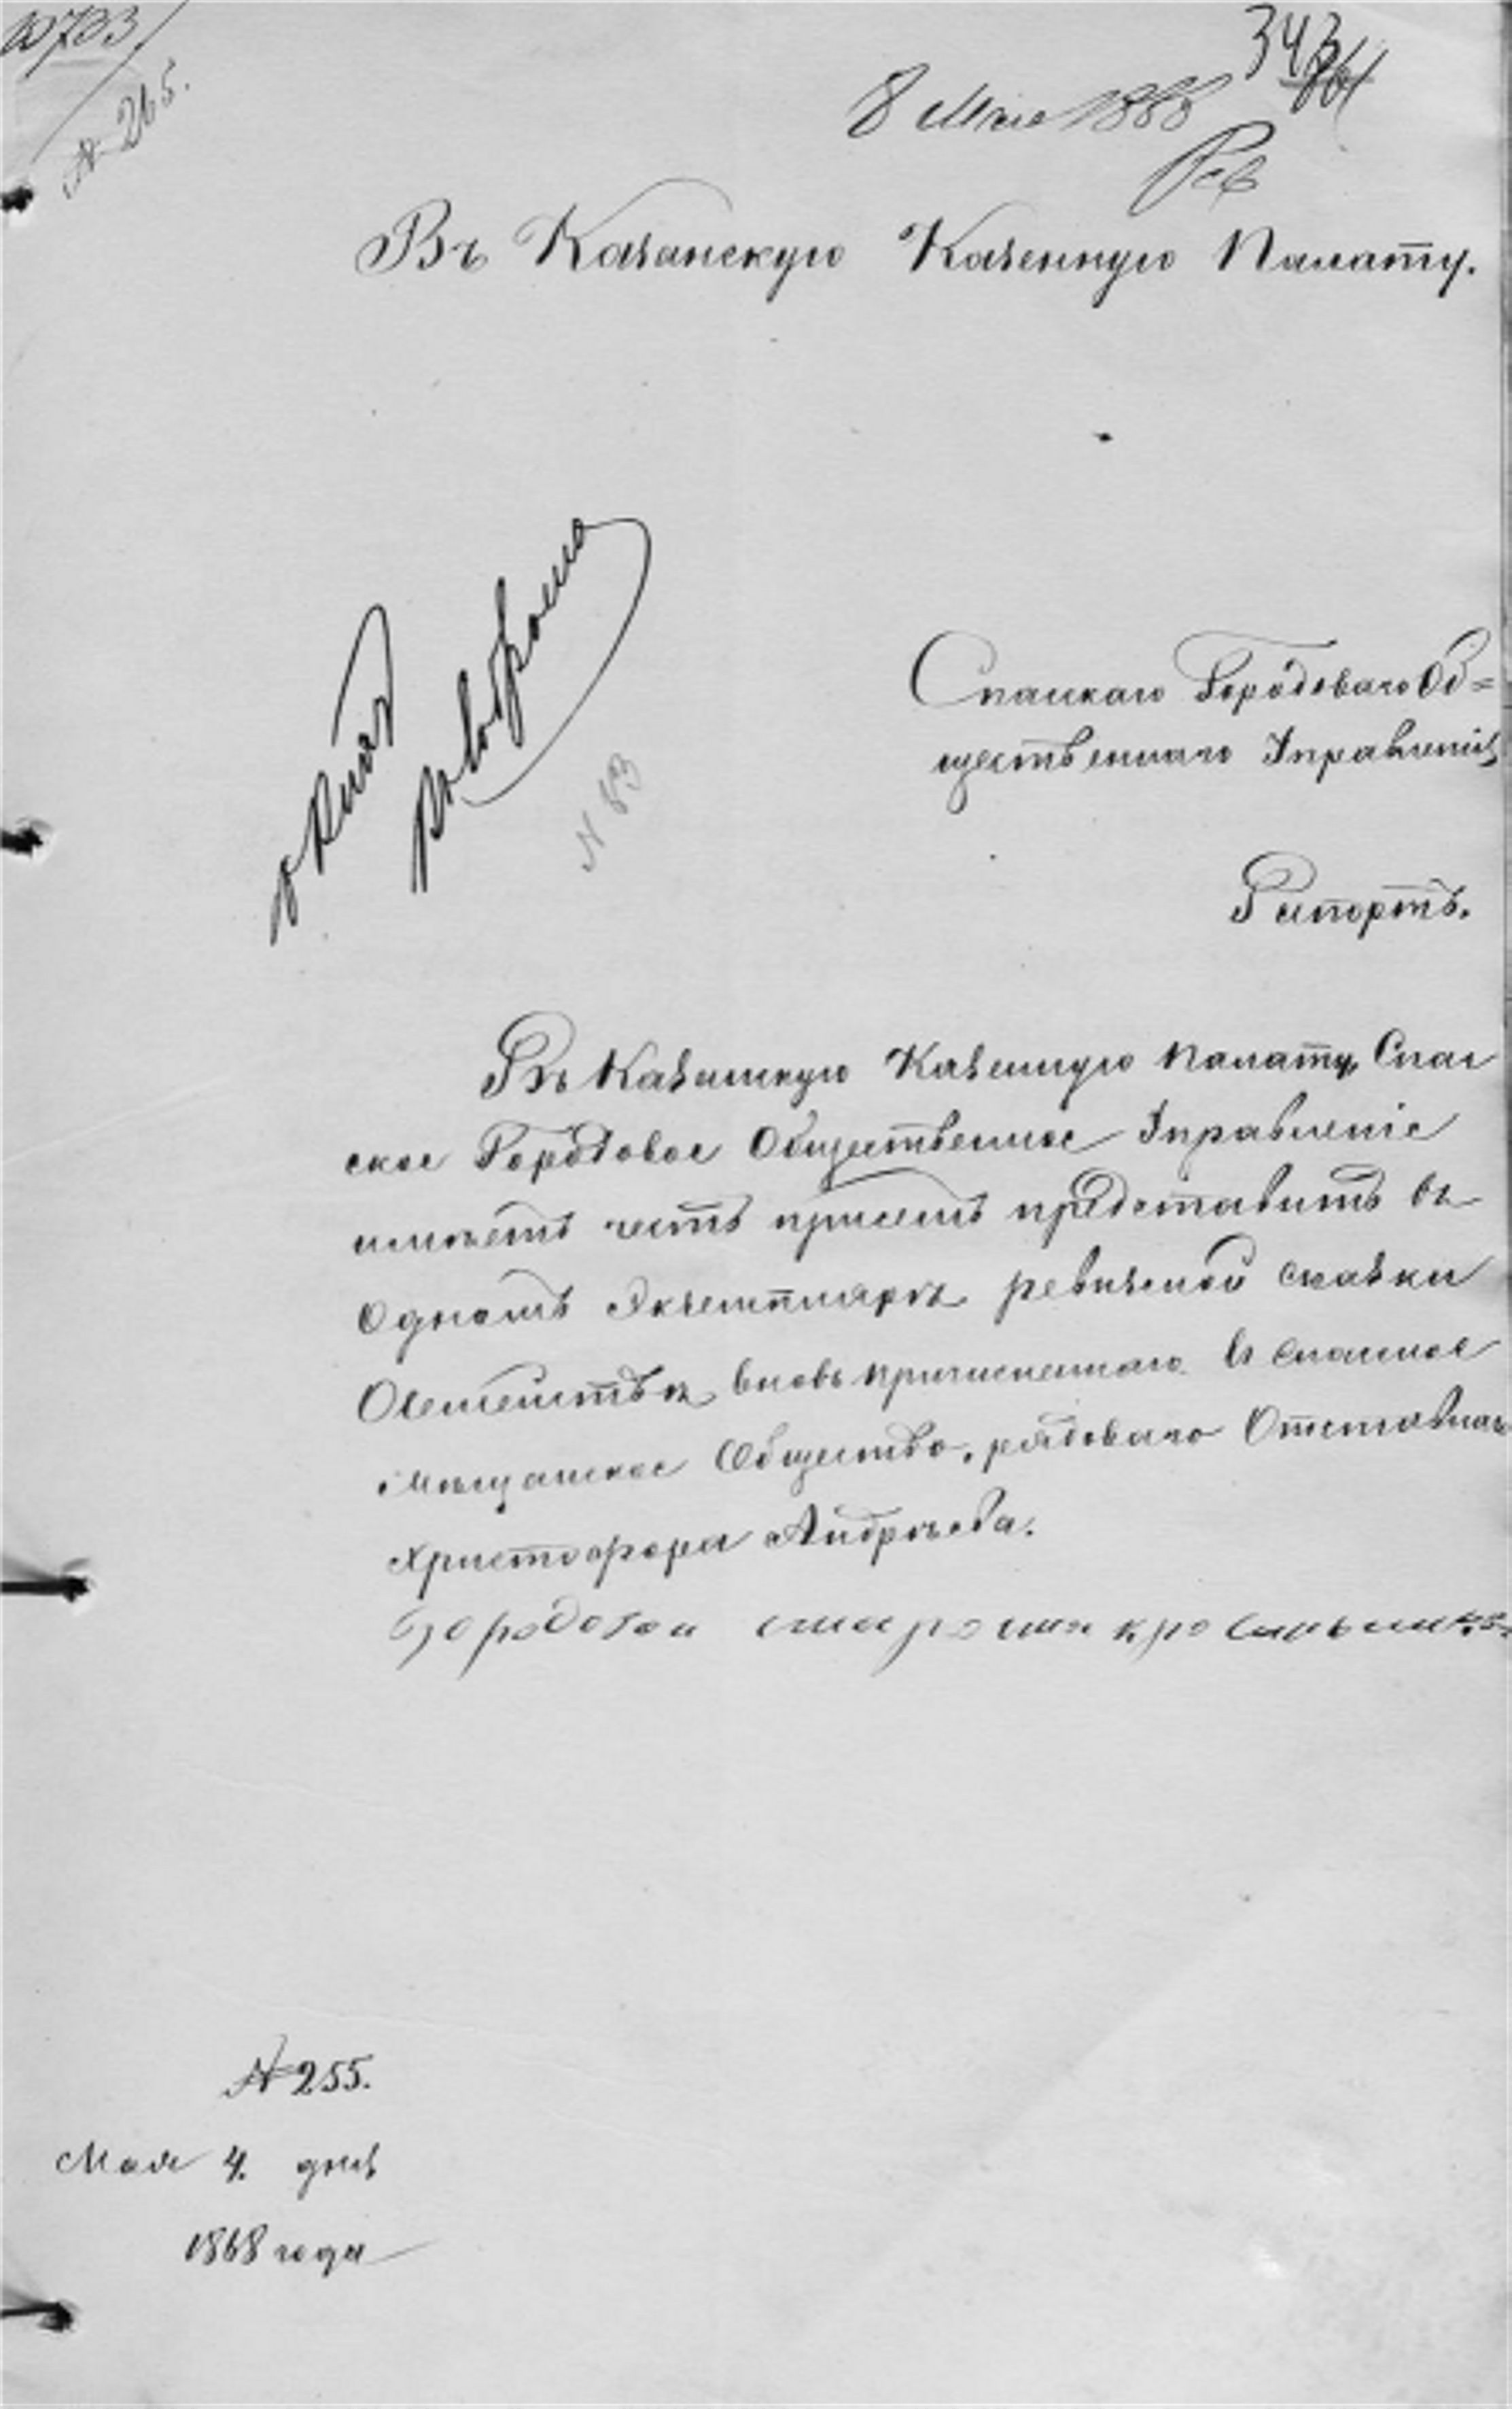 343
8 Мая 1868
Рев
№ 265.
Въ Казанскую Казенную Палату.
Спаскаго Городоваго Об=
щественнаго Управленія
№ 83
Рапортъ.
Въ Казанскую Казенную Палату, Спас
ское Городовое Общественное Управленіе
имѣетъ честь присемъ представить въ
Одномъ Экземпляръ ревизской сказки
Осемействѣ вновь причисленнаго в Спаское
Мѣщанское Общество, рядоваго Отставнаго
Христофора Андрѣева.
Городовой староста
№ 255.
Мая 4 дня
1868 года